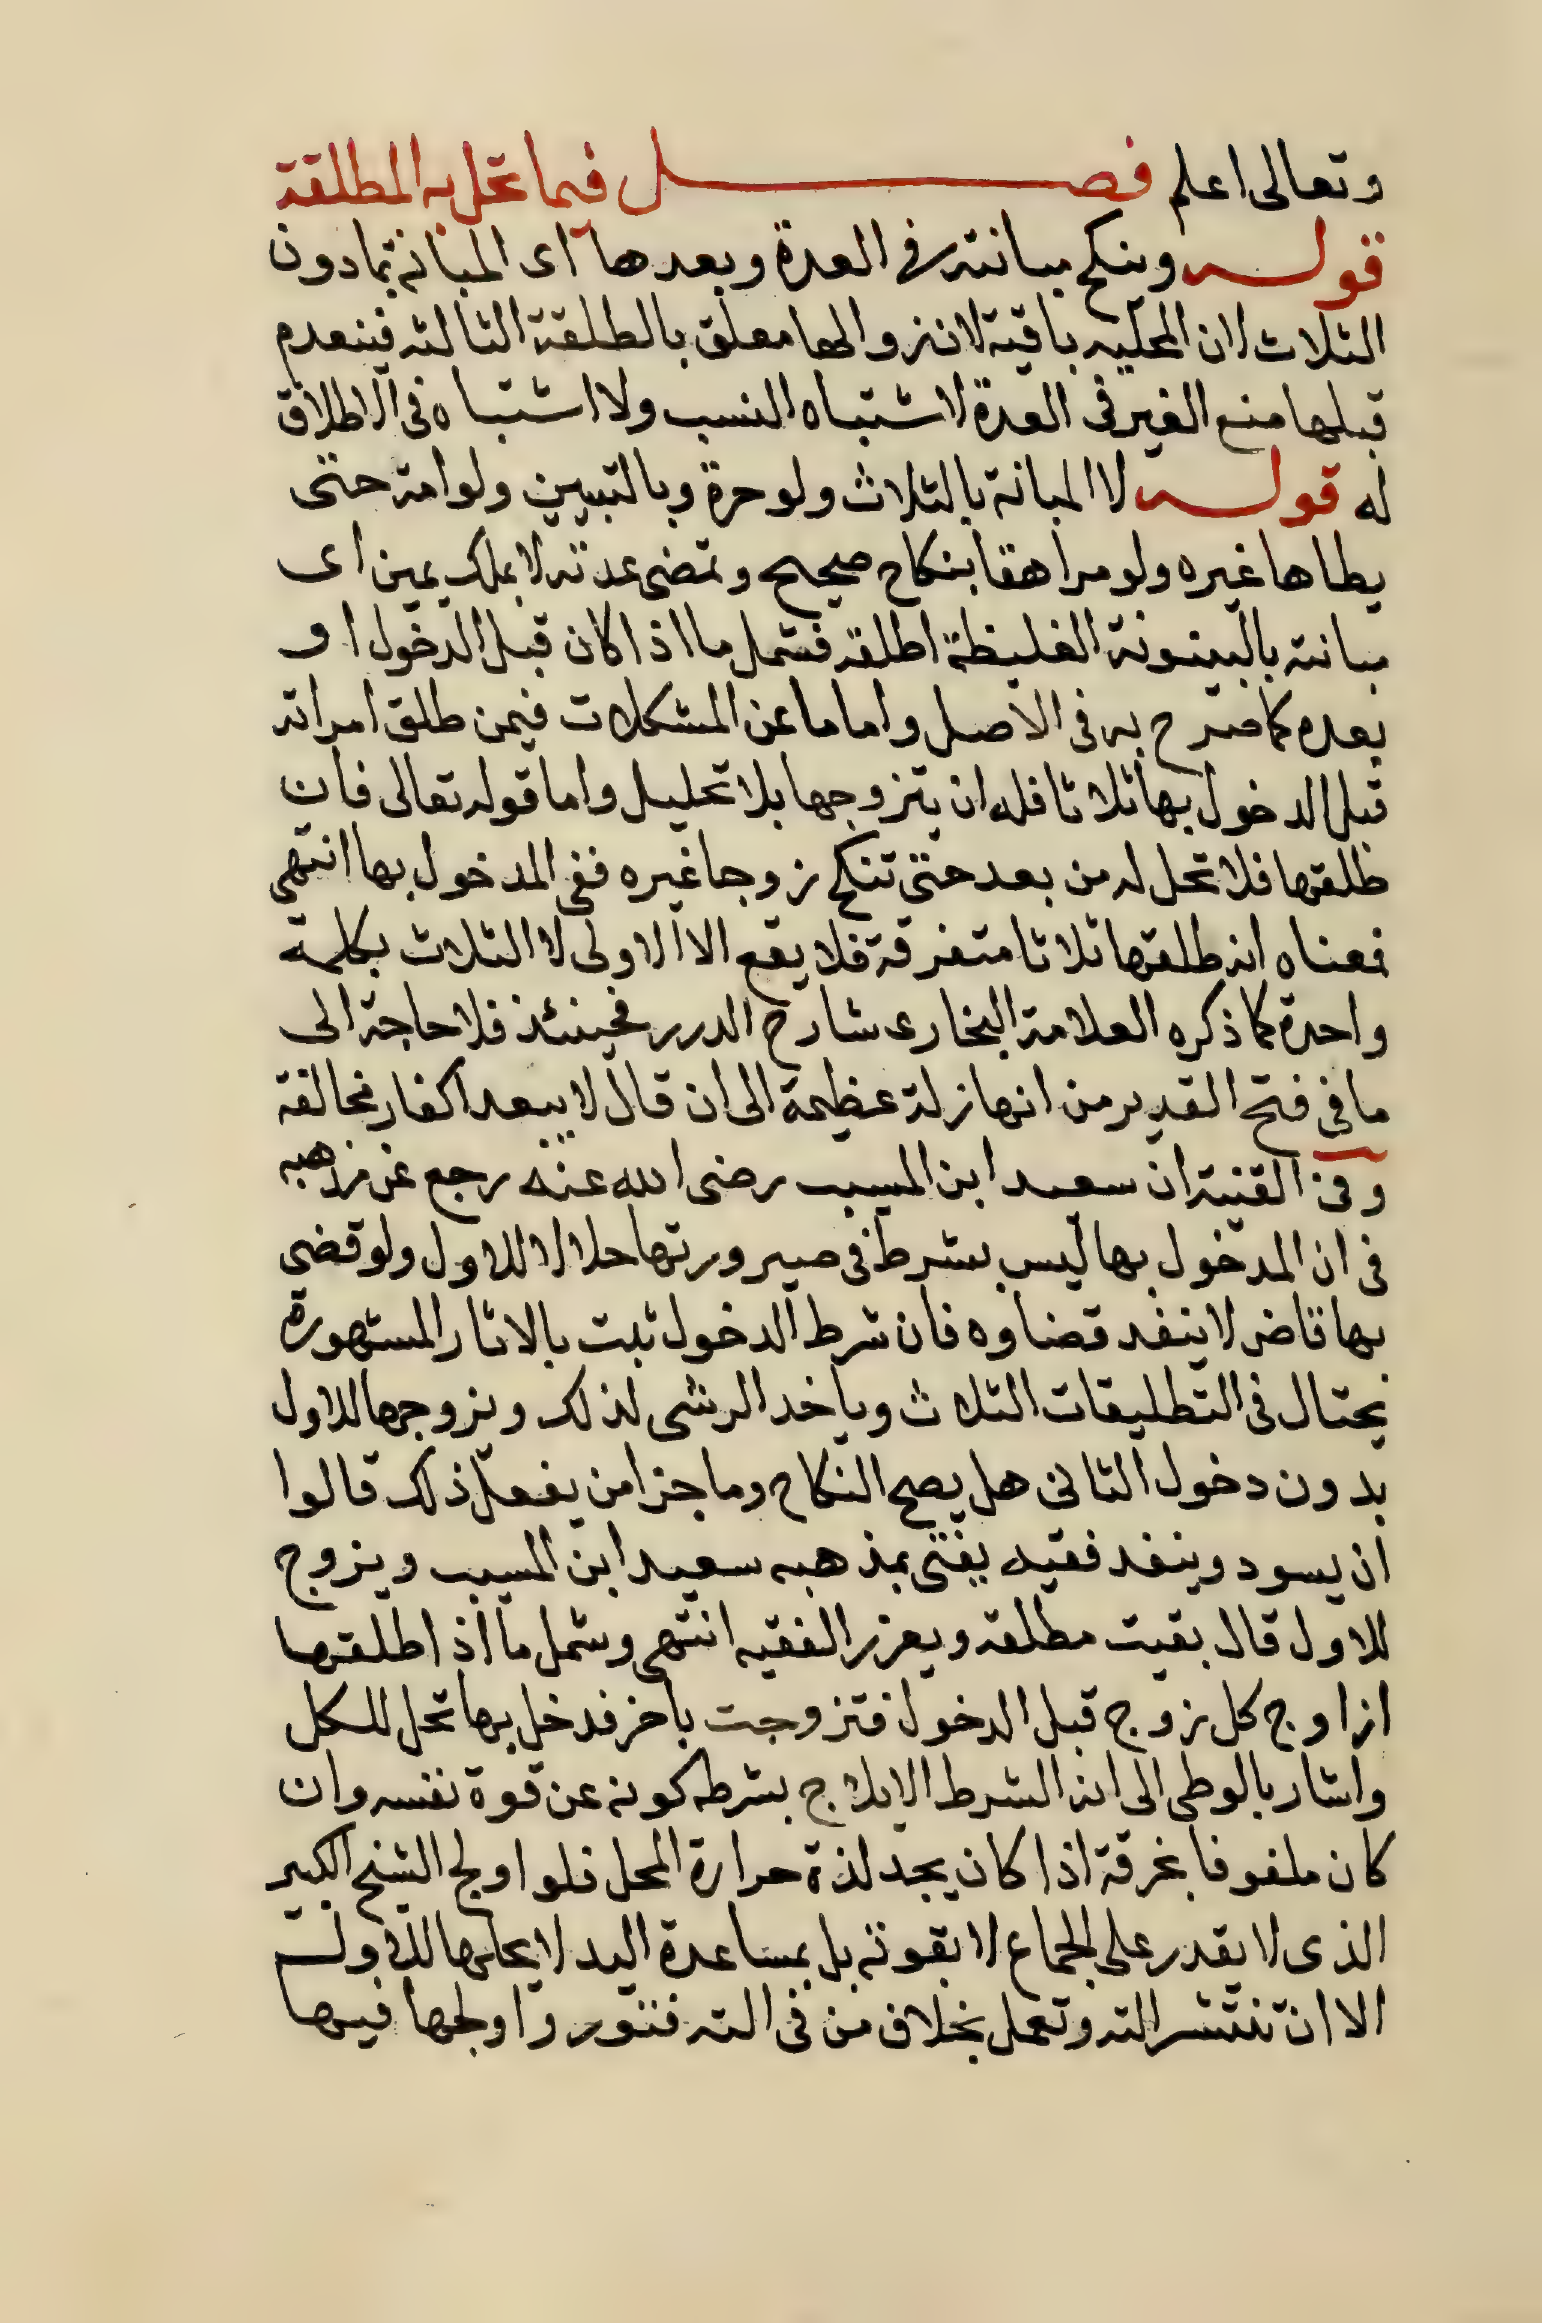 وتعالى اعلم فصل فيما تحل به المطلقة
قوله وينكح مبانته في العدة وبعدها اى المبانة بمادون
الثلاث لان المحلية باقية لان زوالها معلق بالطلقة الثالثه فينعدم
قبلها منع الغير فى العدة لاشتباه النسب ولا اشتباه فى الاطلاق
له قوله لا المبانة بالثلاث ولو حرة وبالثنتين ولو امة حتى
يطاها غيره ولو مراهقا بنكاح صحيح وتمضى عدته لا بملك يمين اى
مبانته بالبينونة الغليظة اطلقه فشمل ما اذا كان قبل الدخول او
بعده كما صرح به فى الاصل واما ما عن المشكلات فيمن طلق امراته
قبل الدخول بها ثلاثا فله ان يتزوجها بلا تحليل واما قوله تعالى فان
طلقها فلا تحل له من بعد حتى تنكح زوجا غيره ففى المدخول بها انتهى
فمعناه انه طلقها ثلاثا متفرقة فلا يقع الا الاولى لا الثلاث بكلمة
واحدة كما ذكره العلامة البخارى شارح الدرر فحينئذ فلا حاجة الى
ما فى فتح القدير من انها زلة عظيمة الى ان قال لا يبعد اكفار مخالفة
وفى القنية ان سعيد ابن المسيب رضى الله عنه رجع عن مذهبه
فى ان المدخول بها ليس بشرط فى صيرورتها حلالا للاول ولو قضى
بها قاض لا ينفد قضاوه فان شرط الدخول ثبت بالاثار المشهورة
يحتال فى التطليقات الثلاث وياخد الرشى لذلك ويزوجها للاول
بدون دخول الثانى هل يصح النكاح وما جزا من يفعل ذلك قالوا
ان يسود وينفد فقيه يفتى بمذهبه سعيد ابن المسيب ويزوج
للاول قال بقيت مطلقة ويعزر الفقيه انتهى وشمل ما اذا طلقها
ازاوج كل زوج قبل الدخول فتزوجت باخر فدخل بها تحل للكل
واشار بالوطى الى انه الشرط الايلاج بشرطه كونه عن قوة نفسه وان
كان ملفوفا بخرقة اذا كان يجد لذة حرارة المحل فلو اولج الشيخ الكبير
الذى لا يقدر على الجماع لا بقوته بل بمساعدة اليد لا يحلها للاول
الا ان تنتشر الته وتعمل بخلاف من فى الته فتور واولجها فيها